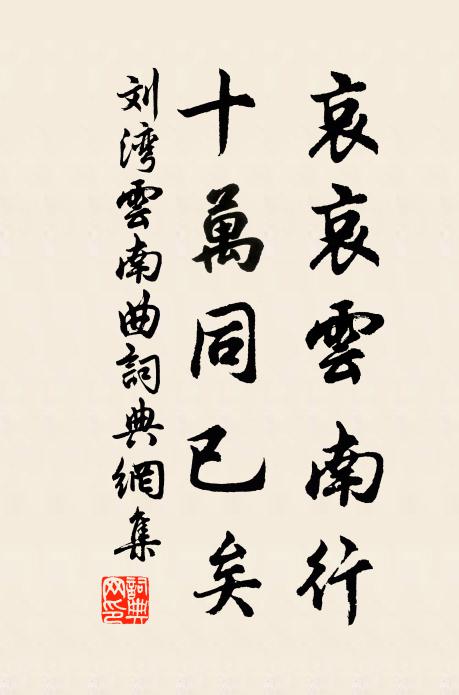 哀哀雲南行
十萬同已矣
刘湾雲南曲詞典網集
詞典网印